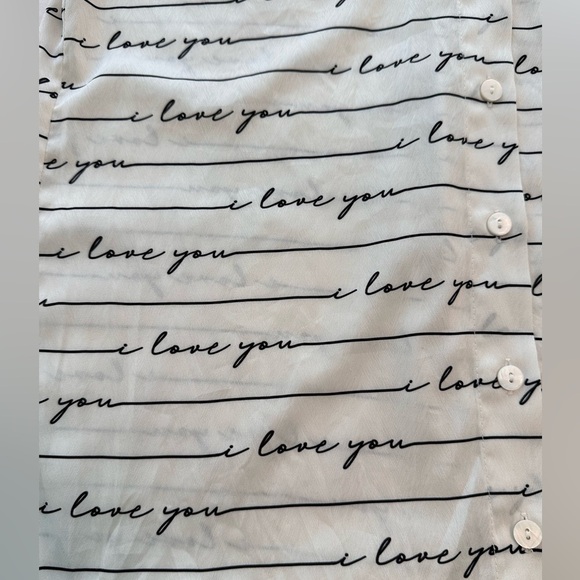 i love you i
i love you lo
i love you
e you i love y
i love you
i love you
i love you
i love you
you i love y
i love you
i love you i
i love you